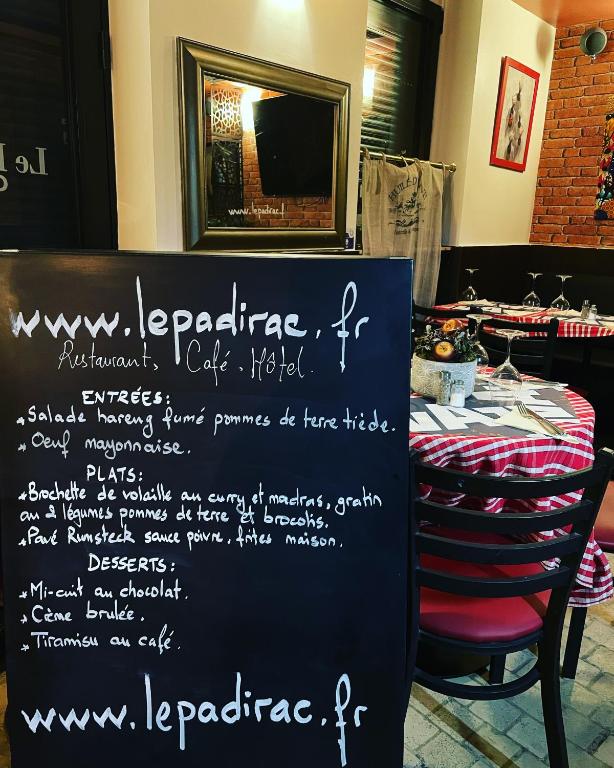 Le
www.lepadirac.f
www.lepadirac.fr
Restaurant, Café. Hôtel.
ENTRÉES:
*Salade hareng fumé pommes de terre tiède.
* Oeuf mayonnaise.
PLATS:
*Brochette de volaille au curry et madras, gratin
au 2 légumes pommes de terre et brocolis.
*Pavé Rumsteck sauce poivre, frites maison.
DESSERTS:
*Mi-cuit au chocolat.
*Cème brulée.
*Tiramisu au café.
www.lepadirac.fr